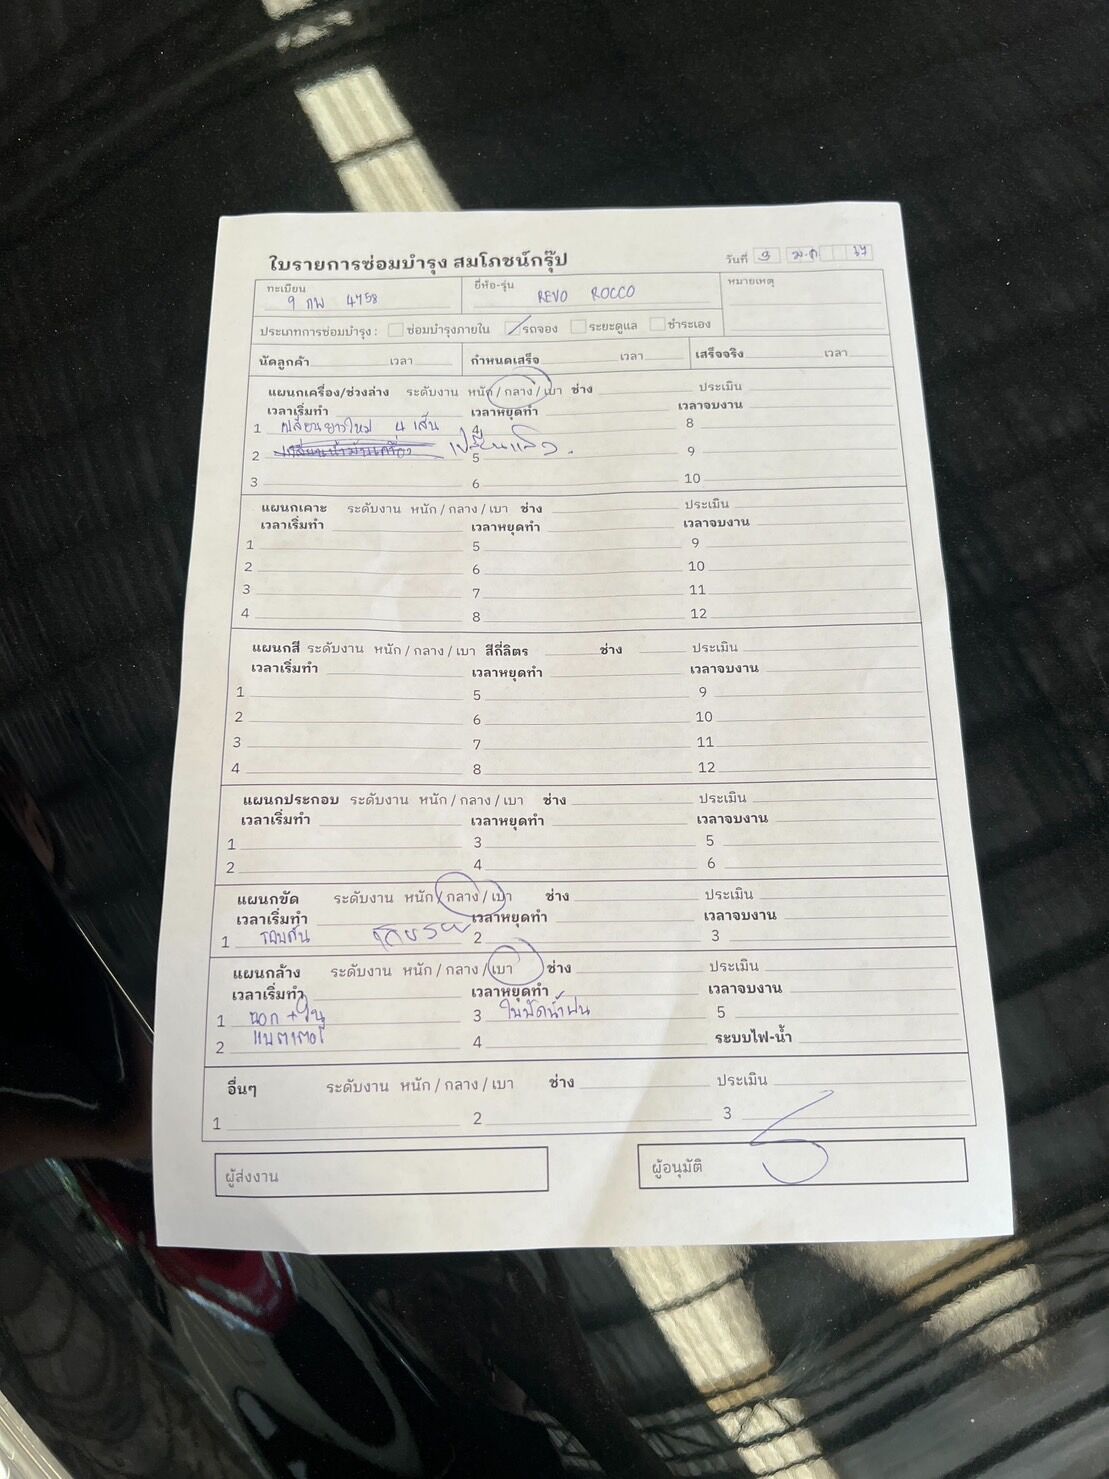 ใบรายการซ่อมบำรุง สมโภชน์กรุ๊ป
วันที่ 3 ม.ค 67
ทะเบียน 9 กพ 4758 ยี่ห้อ-รุ่น REVO ROCCO หมายเหตุ
ประเภทการซ่อมบำรุง : ซ่อมบำรุงภายใน รถจอง ระยะดูแล ชำระเอง
นัดลูกค้า เวลา กำหนดเสร็จ เวลา เสร็จจริง เวลา
แผนกเครื่อง/ช่วงล่าง ระดับงาน หนัก / กลาง / เบา ช่าง ประเมิน
เวลาเริ่มทำ เวลาหยุดทำ เวลาจบงาน
1 เปลี่ยนยางใหม่ 4 เส้น 4 8
2 เปลี่ยนน้ำมันเครื่อง เปลี่ยนแล้ว. 5 9
3 6 10
แผนกเคาะ ระดับงาน หนัก / กลาง / เบา ช่าง ประเมิน
เวลาเริ่มทำ เวลาหยุดทำ เวลาจบงาน
1 5 9
2 6 10
3 7 11
4 8 12
แผนกสี ระดับงาน หนัก / กลาง / เบา สีกี่ลิตร ช่าง ประเมิน
เวลาเริ่มทำ เวลาหยุดทำ เวลาจบงาน
1 5 9
2 6 10
3 7 11
4 8 12
แผนกประกอบ ระดับงาน หนัก / กลาง / เบา ช่าง ประเมิน
เวลาเริ่มทำ เวลาหยุดทำ เวลาจบงาน
1 3 5
2 4 6
แผนกขัด ระดับงาน หนัก / กลาง / เบา ช่าง ประเมิน
เวลาเริ่มทำ เวลาหยุดทำ เวลาจบงาน
1 รอบคัน 2 3
แผนกล้าง ระดับงาน หนัก / กลาง / เบา ช่าง ประเมิน
เวลาเริ่มทำ เวลาหยุดทำ เวลาจบงาน
1 นอก + ใน 3 ใบปัดน้ำฝน 5
2 แบตเตอรี่ 4 ระบบไฟ-น้ำ
อื่นๆ ระดับงาน หนัก / กลาง / เบา ช่าง ประเมิน
1 2 3
ผู้ส่งงาน ผู้อนุมัติ